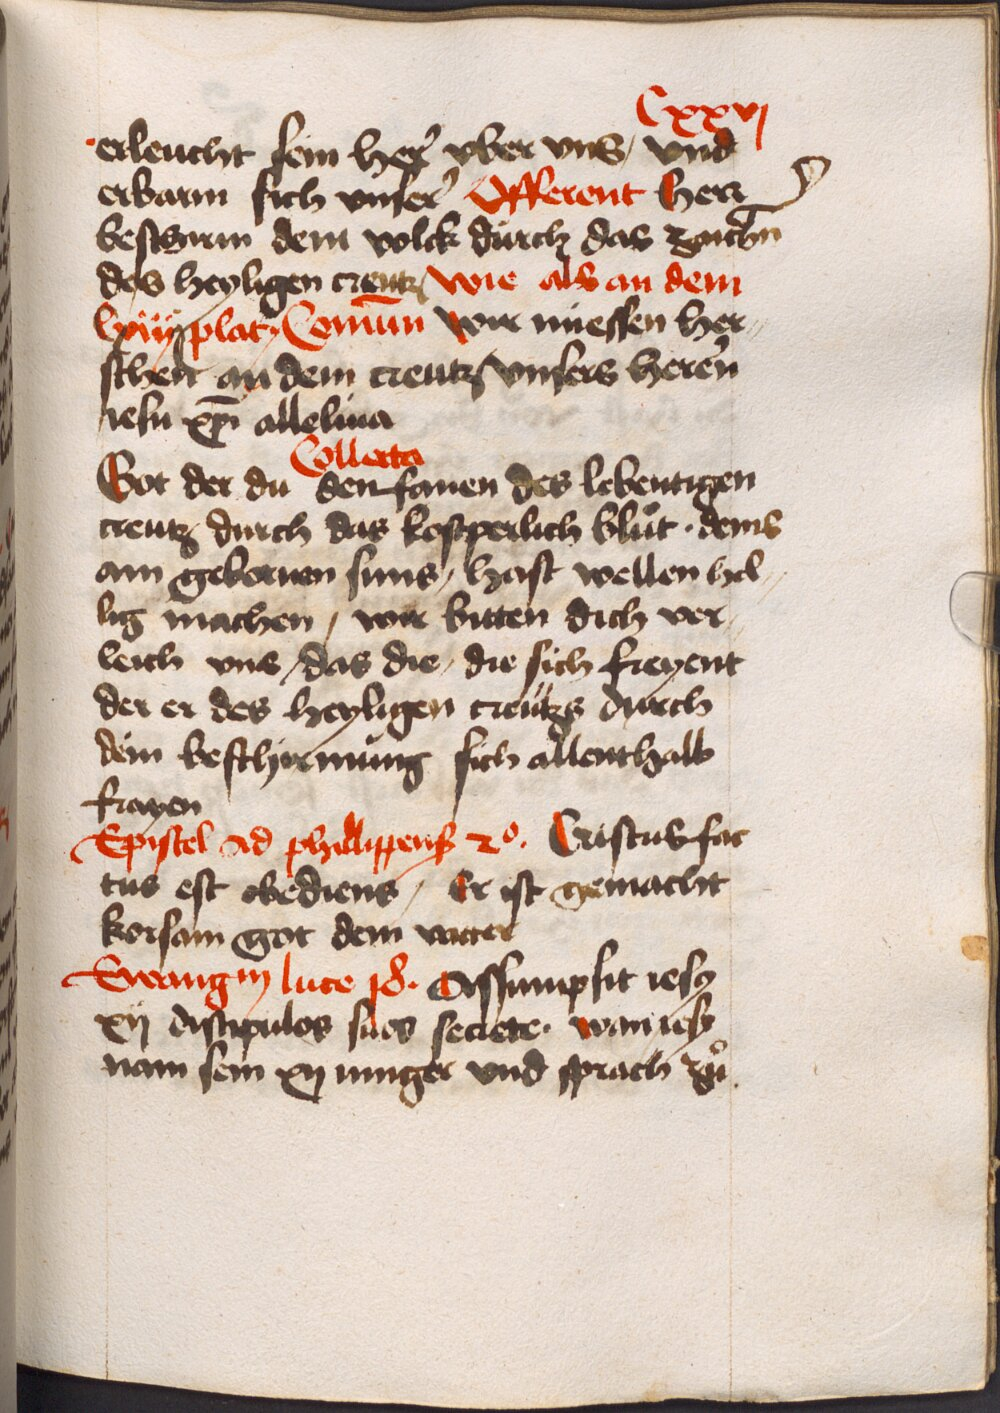 Cxxvj
erleucht sein hercz vber vns / vnd
erbarm sich vnser Offerent Herr
beschirm dein volck durch das zaichn
des heyligen creutz / wie als an dem
lxiiij plat / Comun Wir miessen her
schen an dem creutz / vnsers herren
iesu xpi alleluia
Collecta
Got der du den fanen des lebentigen
creutz durch das kostperlich blůt · deins
ain gebornen suns / hast wellen hel
lig machen / wir bitten dich ver
leich vns / das die / die sich freyent
der er des heyligen creützs durch
dein beschirmung sich allenthalb
frayen
Epistel ad phillippens 2º. Cristus fac
tus est obediens / Er ist gemacht
korsam got dem vatter
Ewangm luce 18. Assumpsit iesus
xij discipulos suos secrete · wan iesus
nam sein xij iunger vnd sprach zů